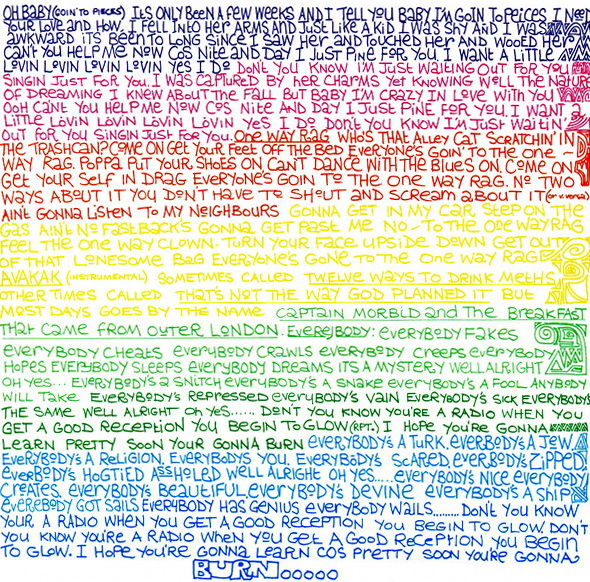 OH BABY (GOIN TO PIECES) ITS ONLY BEEN A FEW WEEKS AND I TELL YOU BABY I'M GOIN TO PEICES I NEED
YOUR LOVE AND HOW. I FELL INTO HER ARMS AND JUST LIKE A KID I WAS SHY AND I WAS
AWKWARD ITS BEEN TO LONG SINCE I SAW HER AND TOUCHED HER AND WOOED HER
CAN'T YOU HELP ME NOW COS NITE AND DAY I JUST PINE FOR YOU, I WANT A LITTLE
LOVIN LOVIN LOVIN LOVIN YES I DO DON'T YOU KNOW I'M JUST WAITING OUT FOR YOU
SINGIN JUST FOR YOU. I WAS CAPTURED BY HER CHARMS YET KNOWING WELL THE NATURE
OF DREAMING I KNEW ABOUT THE FALL BUT BABY I'M CRAZY IN LOVE WITH YOU
OOH CAN'T YOU HELP ME NOW COS NITE AND DAY I JUST PINE FOR YOU, I WANT A
LITTLE LOVIN LOVIN LOVIN LOVIN YES I DO DON'T YOU KNOW I'M JUST WAITIN'
OUT FOR YOU SINGIN JUST FOR YOU. ONE WAY RAG WHO'S THAT ALLEY CAT SCRATCHIN' IN
THE TRASHCAN? COME ON GET YOUR FEET OFF THE BED EVERYONE'S GOIN' TO THE ONE -
WAY RAG. POPPA PUT YOUR SHOES ON CAN'T DANCE WITH THE BLUES ON. COME ON
GET YOUR SELF IN DRAG EVERYONE'S GOIN TO THE ONE WAY RAG. NO TWO
WAYS ABOUT IT YOU DON'T HAVE TO SHOUT AND SCREAM ABOUT IT (OR V. VERSA)
AIN'T GONNA LISTEN TO MY NEIGHBOURS GONNA GET IN MY CAR, STEP ON THE
GAS AIN'T NO FASTBACK'S GONNA GET PAST ME NO - TO THE ONE WAY RAG
FEEL THE ONE WAY CLOWN. TURN YOUR FACE UPSIDE DOWN GET OUT
OF THAT LONESOME BAG EVERYONE'S GONE TO THE ONE WAY RAG
AVAKAK (INSTRUMENTAL) SOMETIMES CALLED TWELVE WAYS TO DRINK METHS,
OTHER TIMES CALLED THAT'S NOT THE WAY GOD PLANNED IT BUT
MOST DAYS GOES BY THE NAME CAPTAIN MORBID AND THE BREAKFAST
THAT CAME FROM OUTER LONDON. EVEREJBODY: EVERYBODY FAKES
EVERYBODY CHEATS EVERYBODY CRAWLS EVERYBODY CREEPS EVERYBODY
HOPES EVERYBODY SLEEPS EVERYBODY DREAMS ITS A MYSTERY WELL ALRIGHT
OH YES... EVERYBODY'S A SNITCH EVERYBODY'S A SNAKE EVERYBODY'S A FOOL ANYBODY
WILL TAKE EVERYBODY'S REPRESSED EVERYBODY'S VAIN EVERYBODY'S SICK EVERYBODY'S
THE SAME WELL ALRIGHT OH YES...... DON'T YOU KNOW YOU'RE A RADIO WHEN YOU
GET A GOOD RECEPTION YOU BEGIN TO GLOW (RPT.) I HOPE YOU'RE GONNA
LEARN PRETTY SOON YOUR GONNA BURN EVERYBODY'S A TURK, EVERBODY'S A JEW
EVERYBODY'S A RELIGION, EVERYBODYS YOU, EVERYBODY'S SCARED, EVERBODY'S ZIPPED
EVERBODY'S HOGTIED ASSHOLED WELL ALRIGHT OH YES.... EVERYBODY'S NICE EVERYBODY
CREATES, EVERYBODY'S BEAUTIFUL, EVERYBODY'S DEVINE EVERYBODY'S A SHIP
EVEREBODY GOT SAILS EVERYBODY HAS GENIUS EVERYBODY WAILS........ DON'T YOU KNOW
YOUR A RADIO WHEN YOU GET A GOOD RECEPTION YOU BEGIN TO GLOW. DON'T
YOU KNOW YOU'RE A RADIO WHEN YOU GET A GOOD RECEPTION YOU BEGIN
TO GLOW. I HOPE YOU'RE GONNA LEARN COS PRETTY SOON YOU'RE GONNA
BURN OOOOO